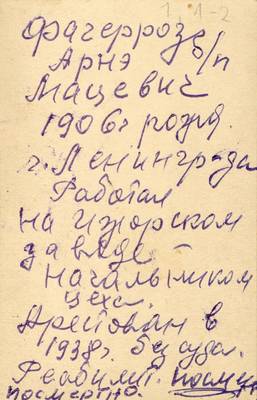 1, 1-2
Фагеррозе
Арнэ б/п
Мацевич
1906 г рожд.
г. Ленинград
Работал
на Ижорском
заводе –
начальником
цеха.
Арестован в
1938г. без суда.
Реабилит.
посмертно.